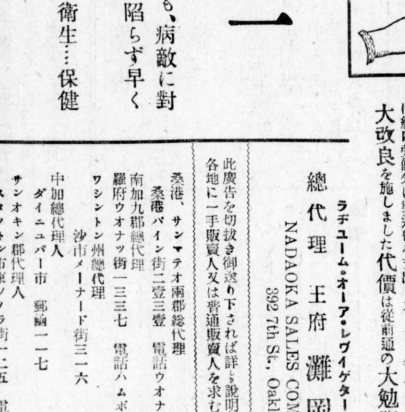 大改良を施しました代價は從前通の大勉
ラヂユーム・オーア・レヴイゲター
總代理 王府 灘岡
NADAOKA SALES COM
392 7th St., Oakl
此廣告を切抜き御送り下されば詳しき説明
各地に一手販賣人又は普通販賣人を求む
桑港、サンマテオ兩郡總代理
桑港パイン街一二壹三壹 電話ウオナ
南加九郡總代理
羅府ウオナツ街一三三七 電話ハムボ
ワシントン州總代理
沙市メーナード街三一六
中加總代理人
ダイニユバー市 郵凾一一七
サンオキン郡代理人
一
も、病敵に對
陷らず早く
衛生…保健